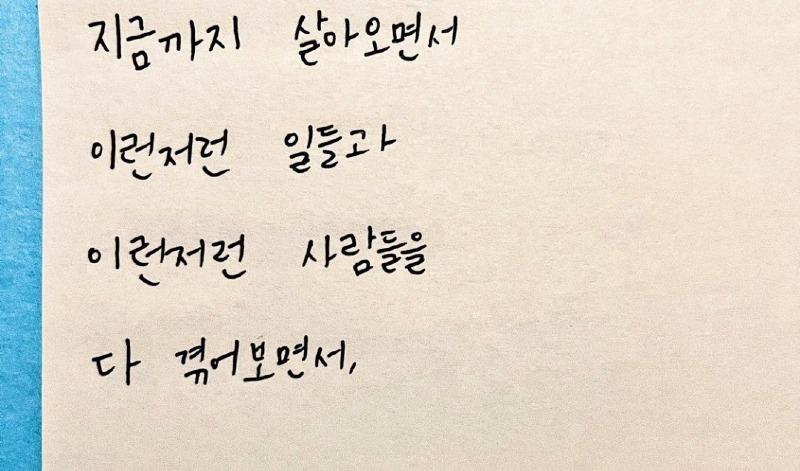 지금까지 살아오면서
이런저런 일들과
이런저런 사람들을
다 겪어보면서,